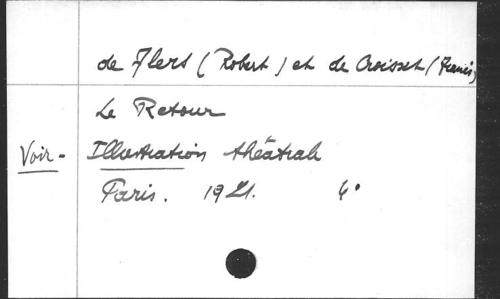 de Flers (Robert) et de Croisset (Francis)
Le Retour
Voir - Illustration théâtrale
Paris. 1921. 4°